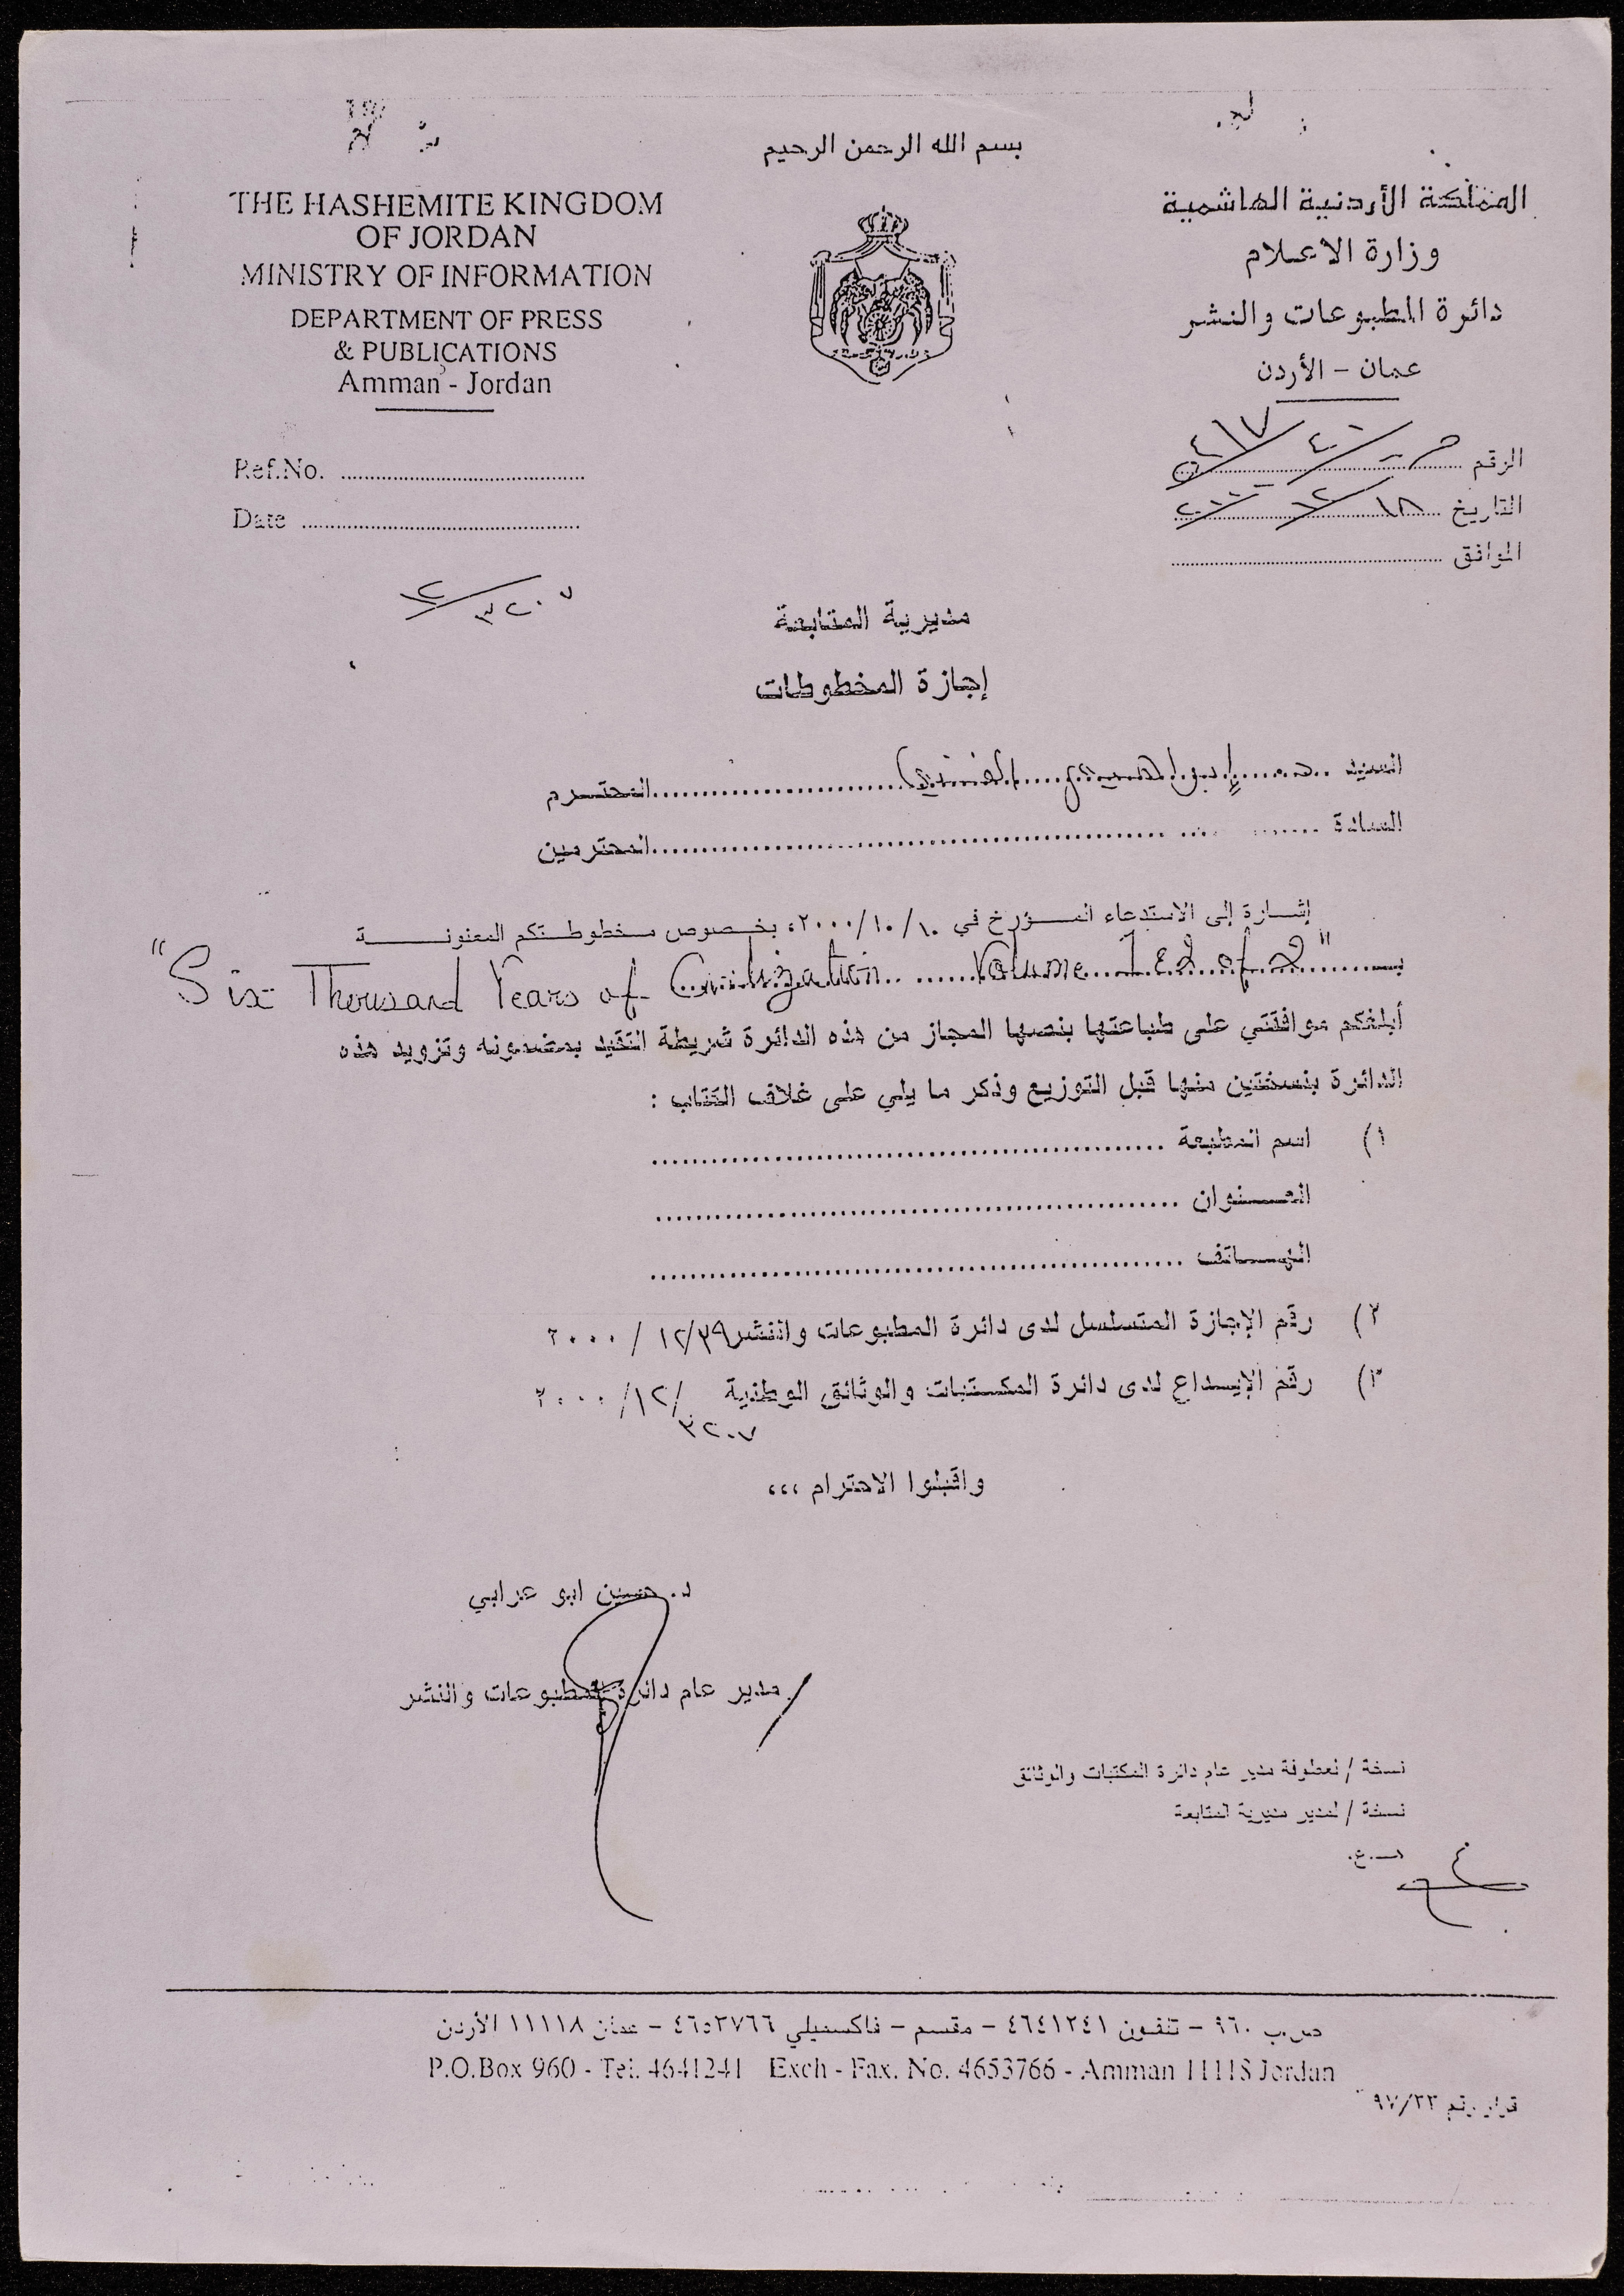 بسم الله الرحمن الرحيم
THE HASHEMITE KINGDOM
OF JORDAN
MINISTRY OF INFORMATION
DEPARTMENT OF PRESS
& PUBLICATIONS
Amman - Jordan
المملكة الأردنية الهاشمية
وزارة الاعلام
دائرة المطبوعات والنشر
عمان - الأردن
Ref.No. ........................
Date ........................
الرقم
التاريخ ١٨/١٢/٢٠٠٠
الموافق ........................
٣٢٠٧/١٢
مديرية المتابعة
إجازة المخطوطات
السيد د. إبراهيم الفني المحترم
السادة ........................ المحترمين
إشارة إلى الاستدعاء المؤرخ في ١٠/١٠/٢٠٠٠، بخصوص مخطوطتكم المعنونة
بـ "Six Thousand Years of Civilization Volume 1 & 2 of 2"
أبلغكم موافقتي على طباعتها بنصها المجاز من هذه الدائرة شريطة التقيد بمضمونه وتزويد هذه
الدائرة بنسختين منها قبل التوزيع وذكر ما يلي على غلاف الكتاب :
١) اسم المطبعة ........................
العنوان ........................
الهاتف ........................
٢) رقم الإجازة المتسلسل لدى دائرة المطبوعات والنشر ١٢/٣٩ / ٢٠٠٠
٣) رقم الإيداع لدى دائرة المكتبات والوثائق الوطنية ٣٢٠٧ /١٢/ ٢٠٠٠
واقبلوا الاحترام ،،،
د. حسين ابو عرابي
مدير عام دائرة المطبوعات والنشر
نسخة / لعطوفة مدير عام دائرة المكتبات والوثائق
نسخة / لمدير مديرية المتابعة
هـ.ع.
ص.ب ٩٦٠ - تلفون ٤٦٤١٢٤١ - مقسم - فاكسميلي ٤٦٥٣٧٦٦ - عمان ١١١١٨ الأردن
P.O.Box 960 - Tel. 4641241 Exch - Fax. No. 4653766 - Amman 11118 Jordan
قرار رقم ٩٧/٢٣